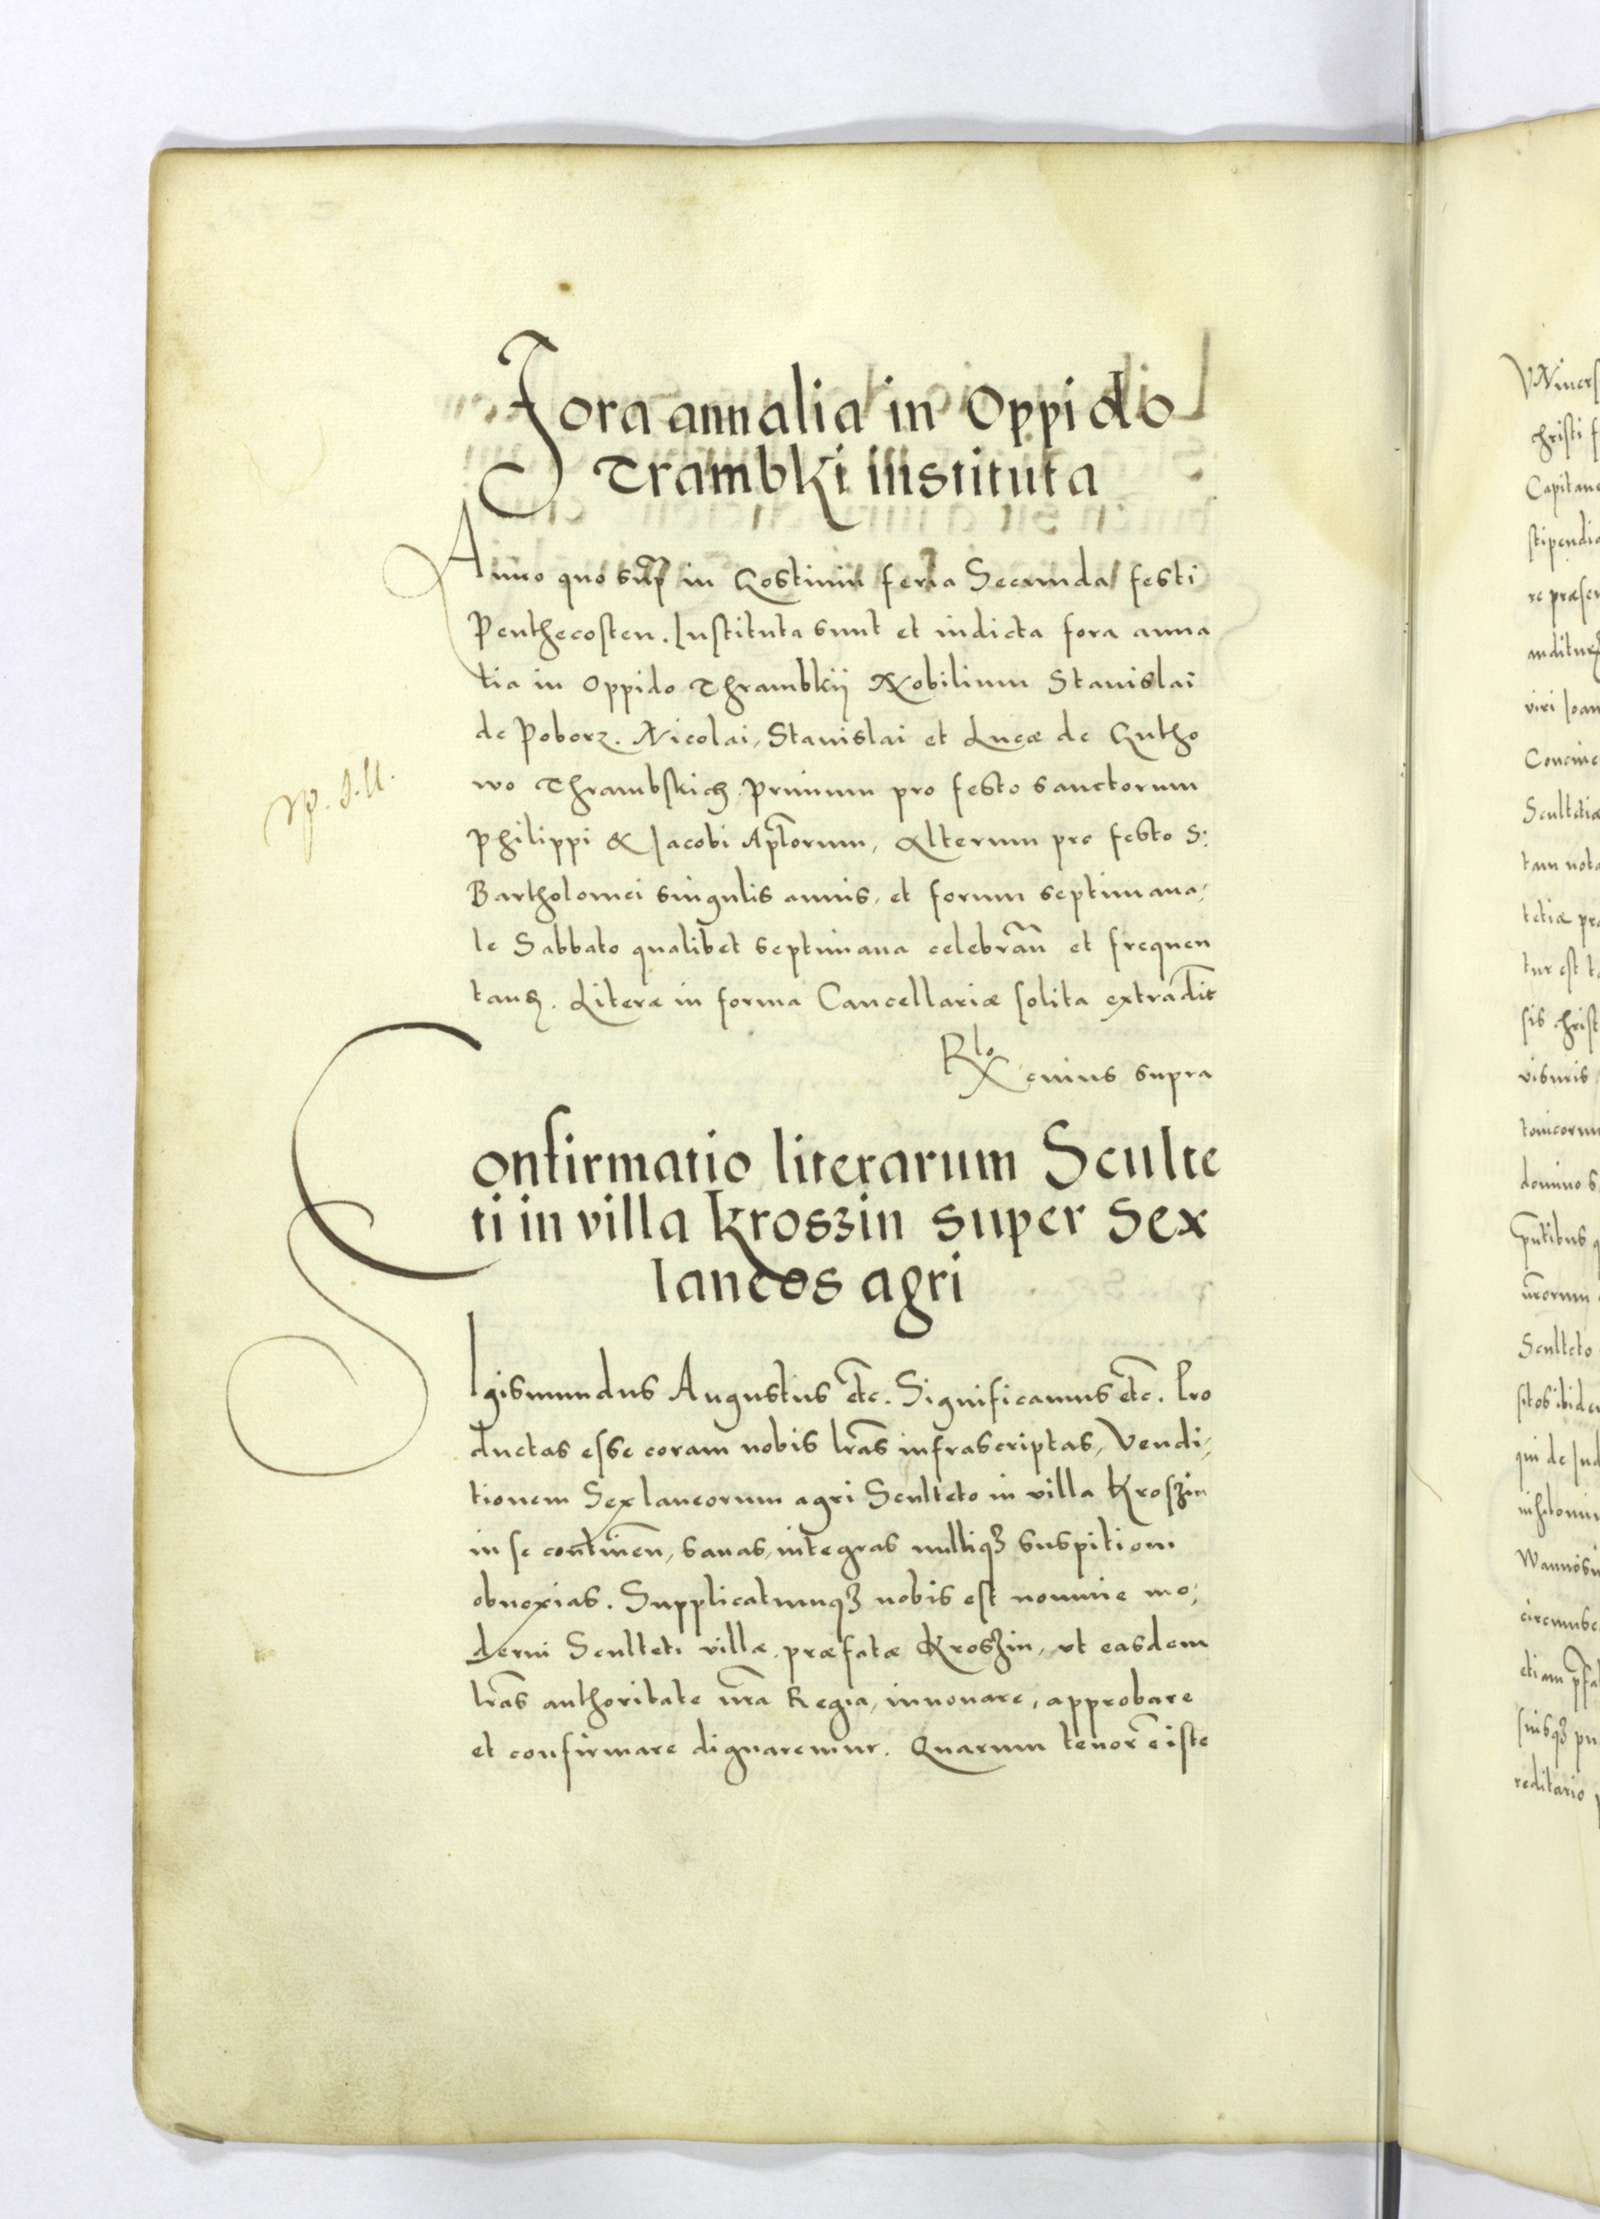 Fora annalia in Oppido
Trambki instituta
Anno quo supra in Gostinin feria Secunda festi
Penthecosten. Instituta sunt et indicta fora anna
lia in Oppido Thrambkij Nobilium Stanislai
de Poborz. Nicolai, Stanislai et Lucæ de Gutho
wo Thrambskich. Primum pro festo sanctorum
Philippi & Jacobi Apl̃orum, Alterum pro festo S:
Bartholomei singulis annis, et forum septimana,
le Sabbato qualibet septimana celebrañ et frequen
tañ. Literæ in forma Cancellariæ solita extradit̃
Rlo cuius supra
Confirmatio literarum Sculte
ti in villa Kroszin super Sex
laneos agri
Sigismundus Augustus etc̃. Significamus etc̃. Pro
ductas esse coram nobis lr̃as infrascriptas, Vendi,
tionem Sex laneorum agri Sculteto in villa Kroszin
in se contineñ, sanas, integras nulliqꝫ suspitioni
obnoxias. Supplicatumqꝫ nobis est nomine mo,
derni Sculteti villæ præfatæ Kroszin, ut easdem
lr̃as authoritate nr̃a Regia, innouare, approbare
et confirmare dignaremur. Quarum tenor ẽ iste
Vniuers
christi f
Capitane
stipendia
re præsen
auditurꝫ
viri Joan
Conuine
Scultetiæ
tam nota
tetiæ pra
tur est t
sis christ
visuris
tonicorum
domino s
ñrorum
Sculteto
sitos ibide
qui de Jud
nihilomin
circumsc
etiam p̃fat
suisqꝫ pu
reditario